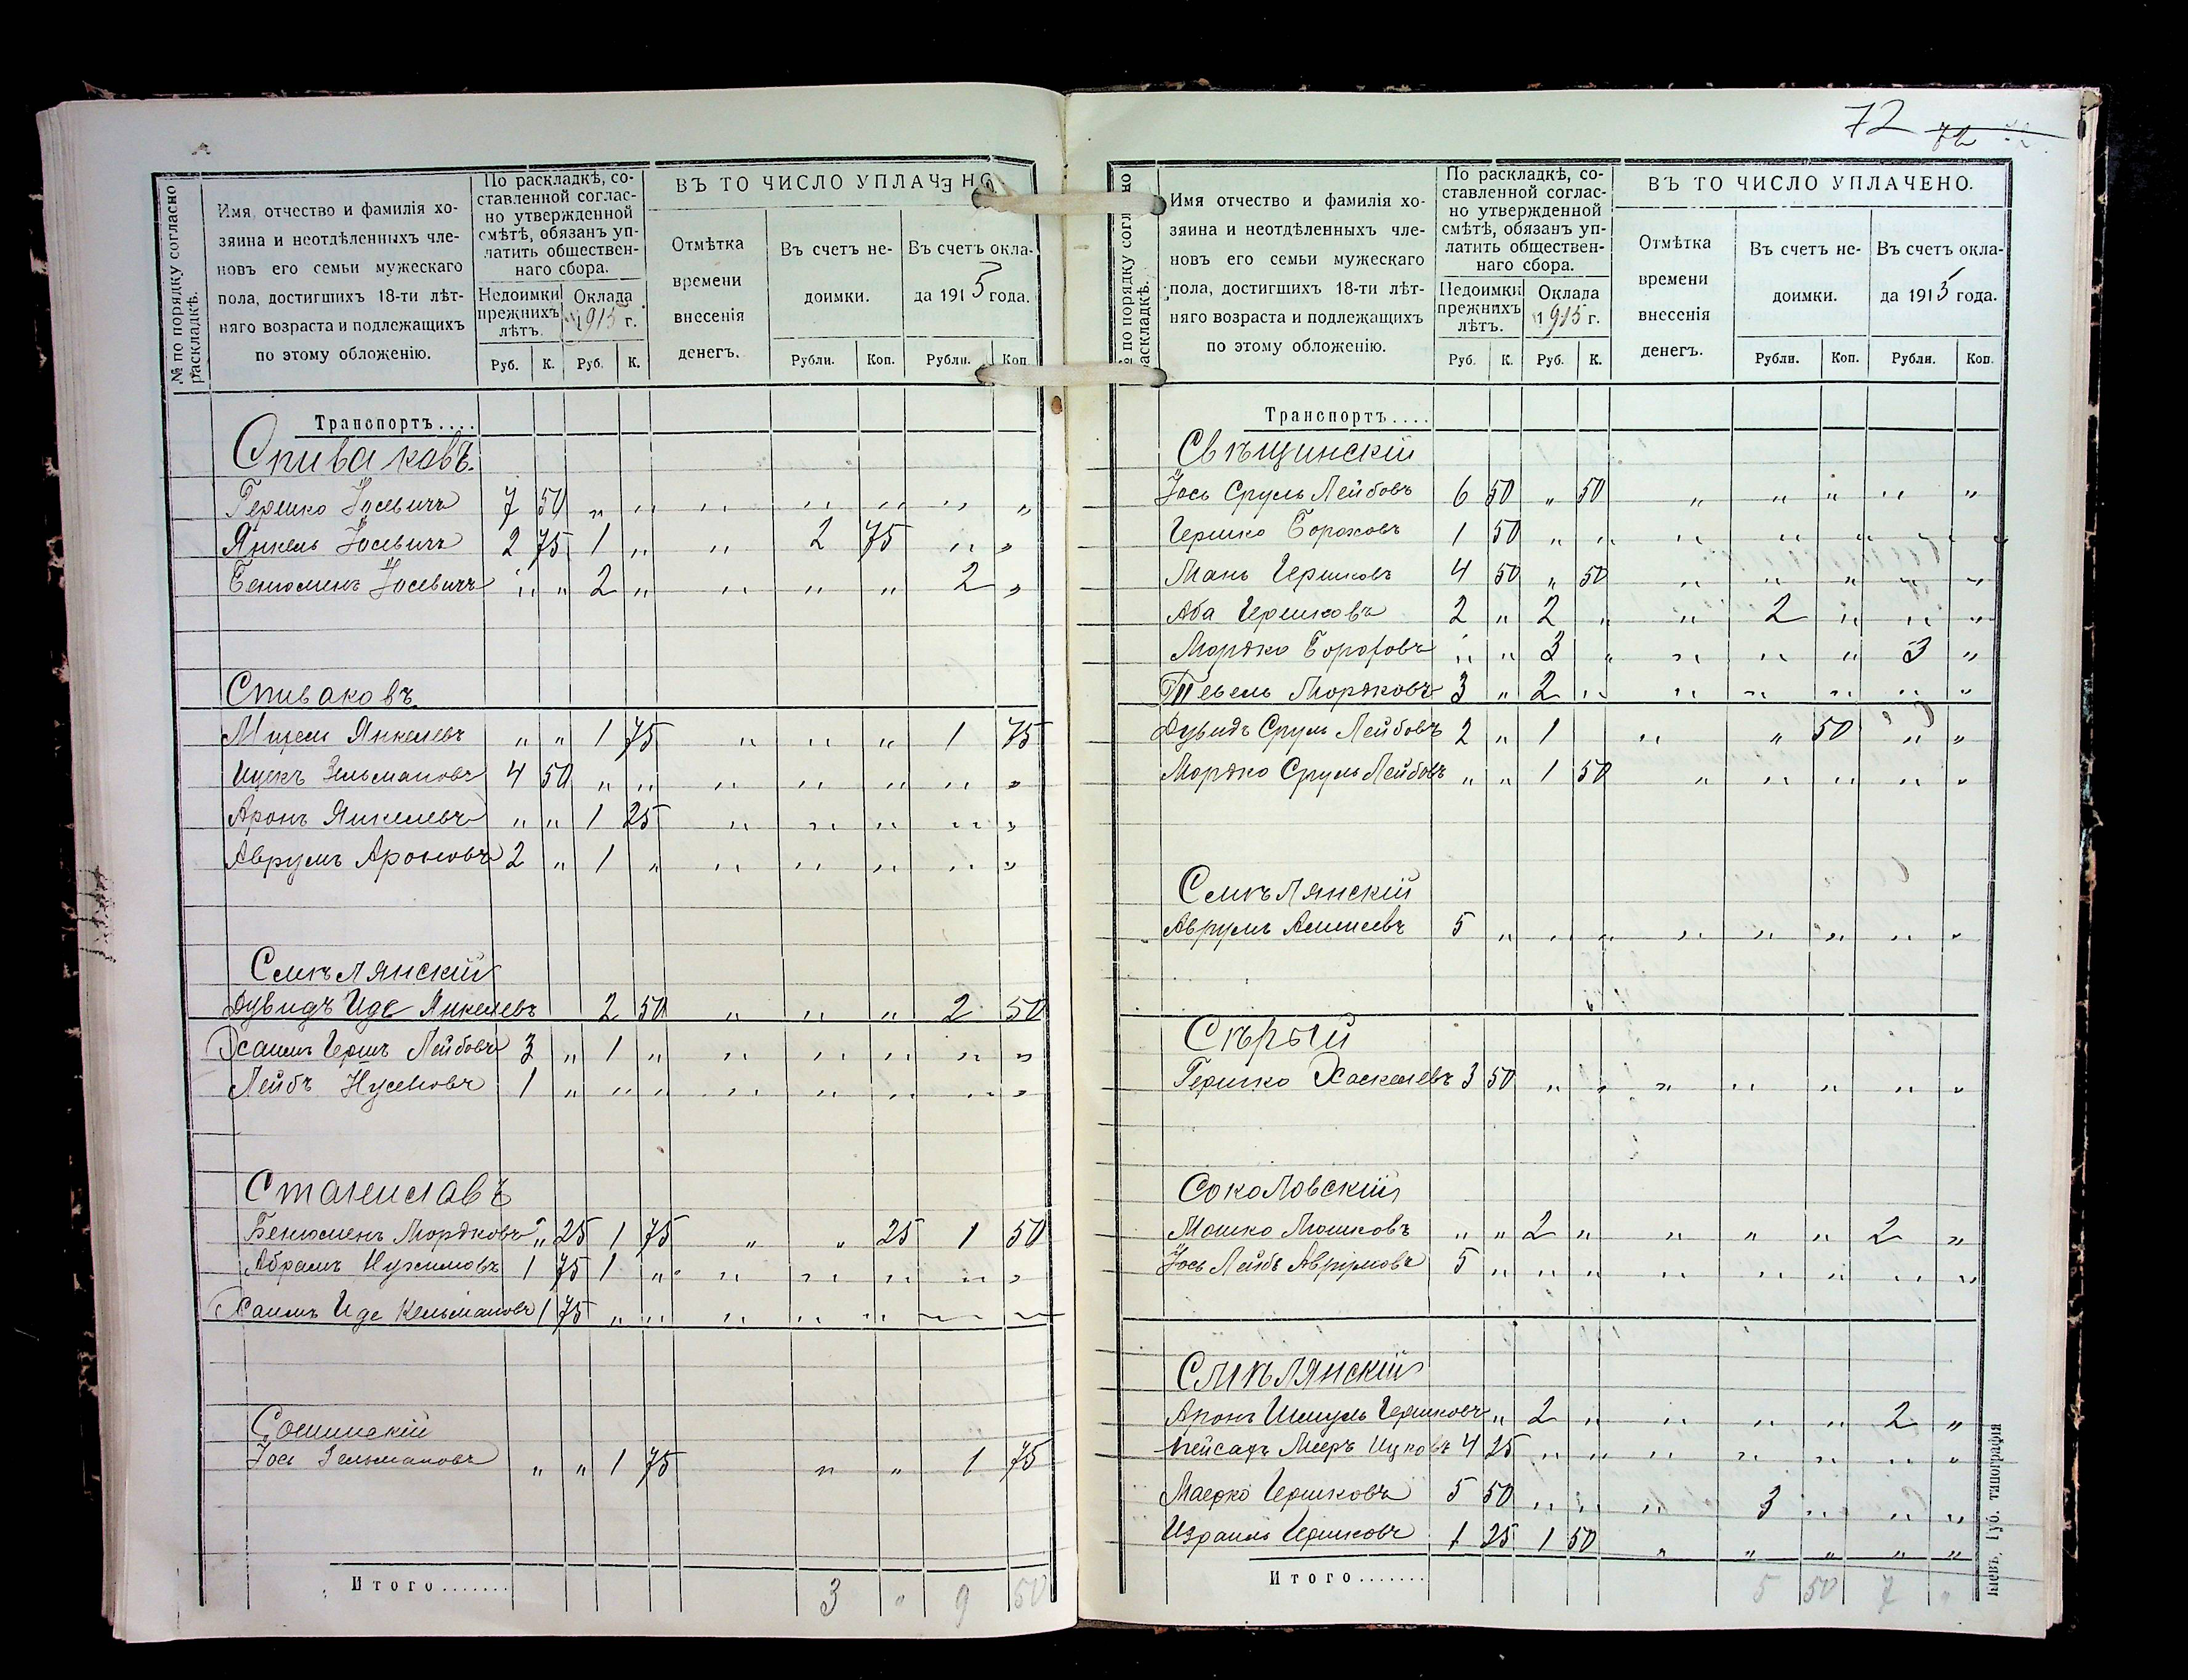 № по порядку согласно раскладкѣ.
Имя, отчество и фамилія хо-
зяина и неотдѣленныхъ чле-
новъ его семьи мужескаго
пола, достигшихъ 18-ти лѣт-
няго возраста и подлежащихъ
по этому обложенію.
По раскладкѣ, со-
ставленной соглас-
но утвержденной
смѣтѣ, обязанъ уп-
латить обществен-
наго сбора.
Недоимки прежнихъ лѣтъ.
Оклада 1915 г.
Руб. К. Руб. К.
ВЪ ТО ЧИСЛО УПЛАЧЕНО
Отмѣтка
времени
внесенія
денегъ.
Въ счетъ не-
доимки.
Въ счетъ окла-
да 1915 года.
Рубли. Коп. Рубли. Коп
Транспортъ....
Спиваковъ.
Гершко Іосевичъ 7 50 „ „ „ „ „ „ „
Янкель Іосевичъ 2 75 1 „ „ 2 75 „ „
Бенюменъ Іосевичъ „ „ 2 „ „ „ „ 2 „
Спиваковъ
Мицель Янкелевъ „ „ 1 75 „ „ „ 1 75
Ицекъ Зельмановъ 4 50 „ „ „ „ „ „ „
Аронъ Янкелевъ „ „ 1 25 „ „ „ „ „
Аврумъ Ароновъ 2 „ 1 „ „ „ „ „ „
Смѣлянскій
Дувидъ Иде Янкелевъ 2 50 „ „ „ 2 50
Хаимъ Гершъ Лейбовъ 3 „ 1 „ „ „ „ „ „
Лейбъ Нусеновъ 1 „ „ „ „ „ „ „ „
Станиславъ
Бенюменъ Мордковъ „ 25 1 75 „ „ 25 1 50
Абрамъ Нухимовъ 1 75 1 „ „ „ „ „ „
Хаимъ Иде Кельмановъ 1 75 „ „ „ „ „ „ „
Іось Зельмановъ „ „ 1 75 „ „ 1 75
Итого....... 3 „ 9 50
72 72
№ по порядку согласно раскладкѣ.
Имя отчество и фамилія хо-
зяина и неотдѣленныхъ чле-
новъ его семьи мужескаго
пола, достигшихъ 18-ти лѣт-
няго возраста и подлежащихъ
по этому обложенію.
По раскладкѣ, со-
ставленной соглас-
но утвержденной
смѣтѣ, обязанъ уп-
латить обществен-
наго сбора.
Недоимки прежнихъ лѣтъ.
Оклада 1915 г.
Руб. К. Руб. К.
ВЪ ТО ЧИСЛО УПЛАЧЕНО.
Отмѣтка
времени
внесенія
денегъ.
Въ счетъ не-
доимки.
Въ счетъ окла-
да 1915 года.
Рубли. Коп. Рубли. Коп.
Транспортъ....
Свѣщинскій
Іось Сруль Лейбовъ 6 50 „ 50 „ „ „ „ „
Гершко Бороховъ 1 50 „ „ „ „ „ „ „
Мань Гершковъ 4 50 „ 50 „ „ „ „ „
Аба Гершковъ 2 „ 2 „ „ 2 „ „ „
Мордко Бороховъ „ „ 3 „ „ „ „ 3 „
Тевель Мордковъ 3 „ 2 „ „ „ „ „ „
Дувидъ Сруль Лейбовъ 2 „ 1 „ „ 50 „ „
Мордко Сруль Лейбовъ „ „ 1 50 „ „ „ „ „
Смѣлянскій
Аврумъ 5 „ „ „ „ „ „ „ „
Сѣрый
Гершко Хаскелевъ 3 50 „ „ „ „ „ „ „
Соколовскій
Мошко Мошковъ „ „ 2 „ „ „ „ 2 „
Іось Лейбъ Аврумовъ 5 „ „ „ „ „ „ „ „
Смѣлянскій
Аронъ Шмуль Гершковъ „ 2 „ „ „ „ 2 „
Пейсахъ Мееръ Ицковъ 4 25 „ „ „ „ „ „ „
Маерко Гершковъ 5 50 „ „ „ 3 „ „ „
Израиль Гершковъ 1 25 1 50 „ „ „ „ „
Итого....... 5 50 7 „
Кіевъ, Губ. типографія